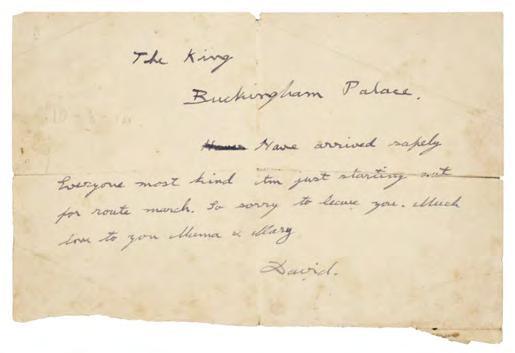 The King
Buckingham Palace.
Have arrived safely
Everyone most kind Am just starting out
for route march. So sorry to leave you. Much
love to you Mama & Mary
David.